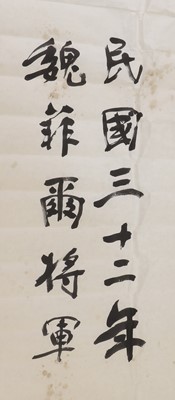 民國三十二年
魏菲爾將軍